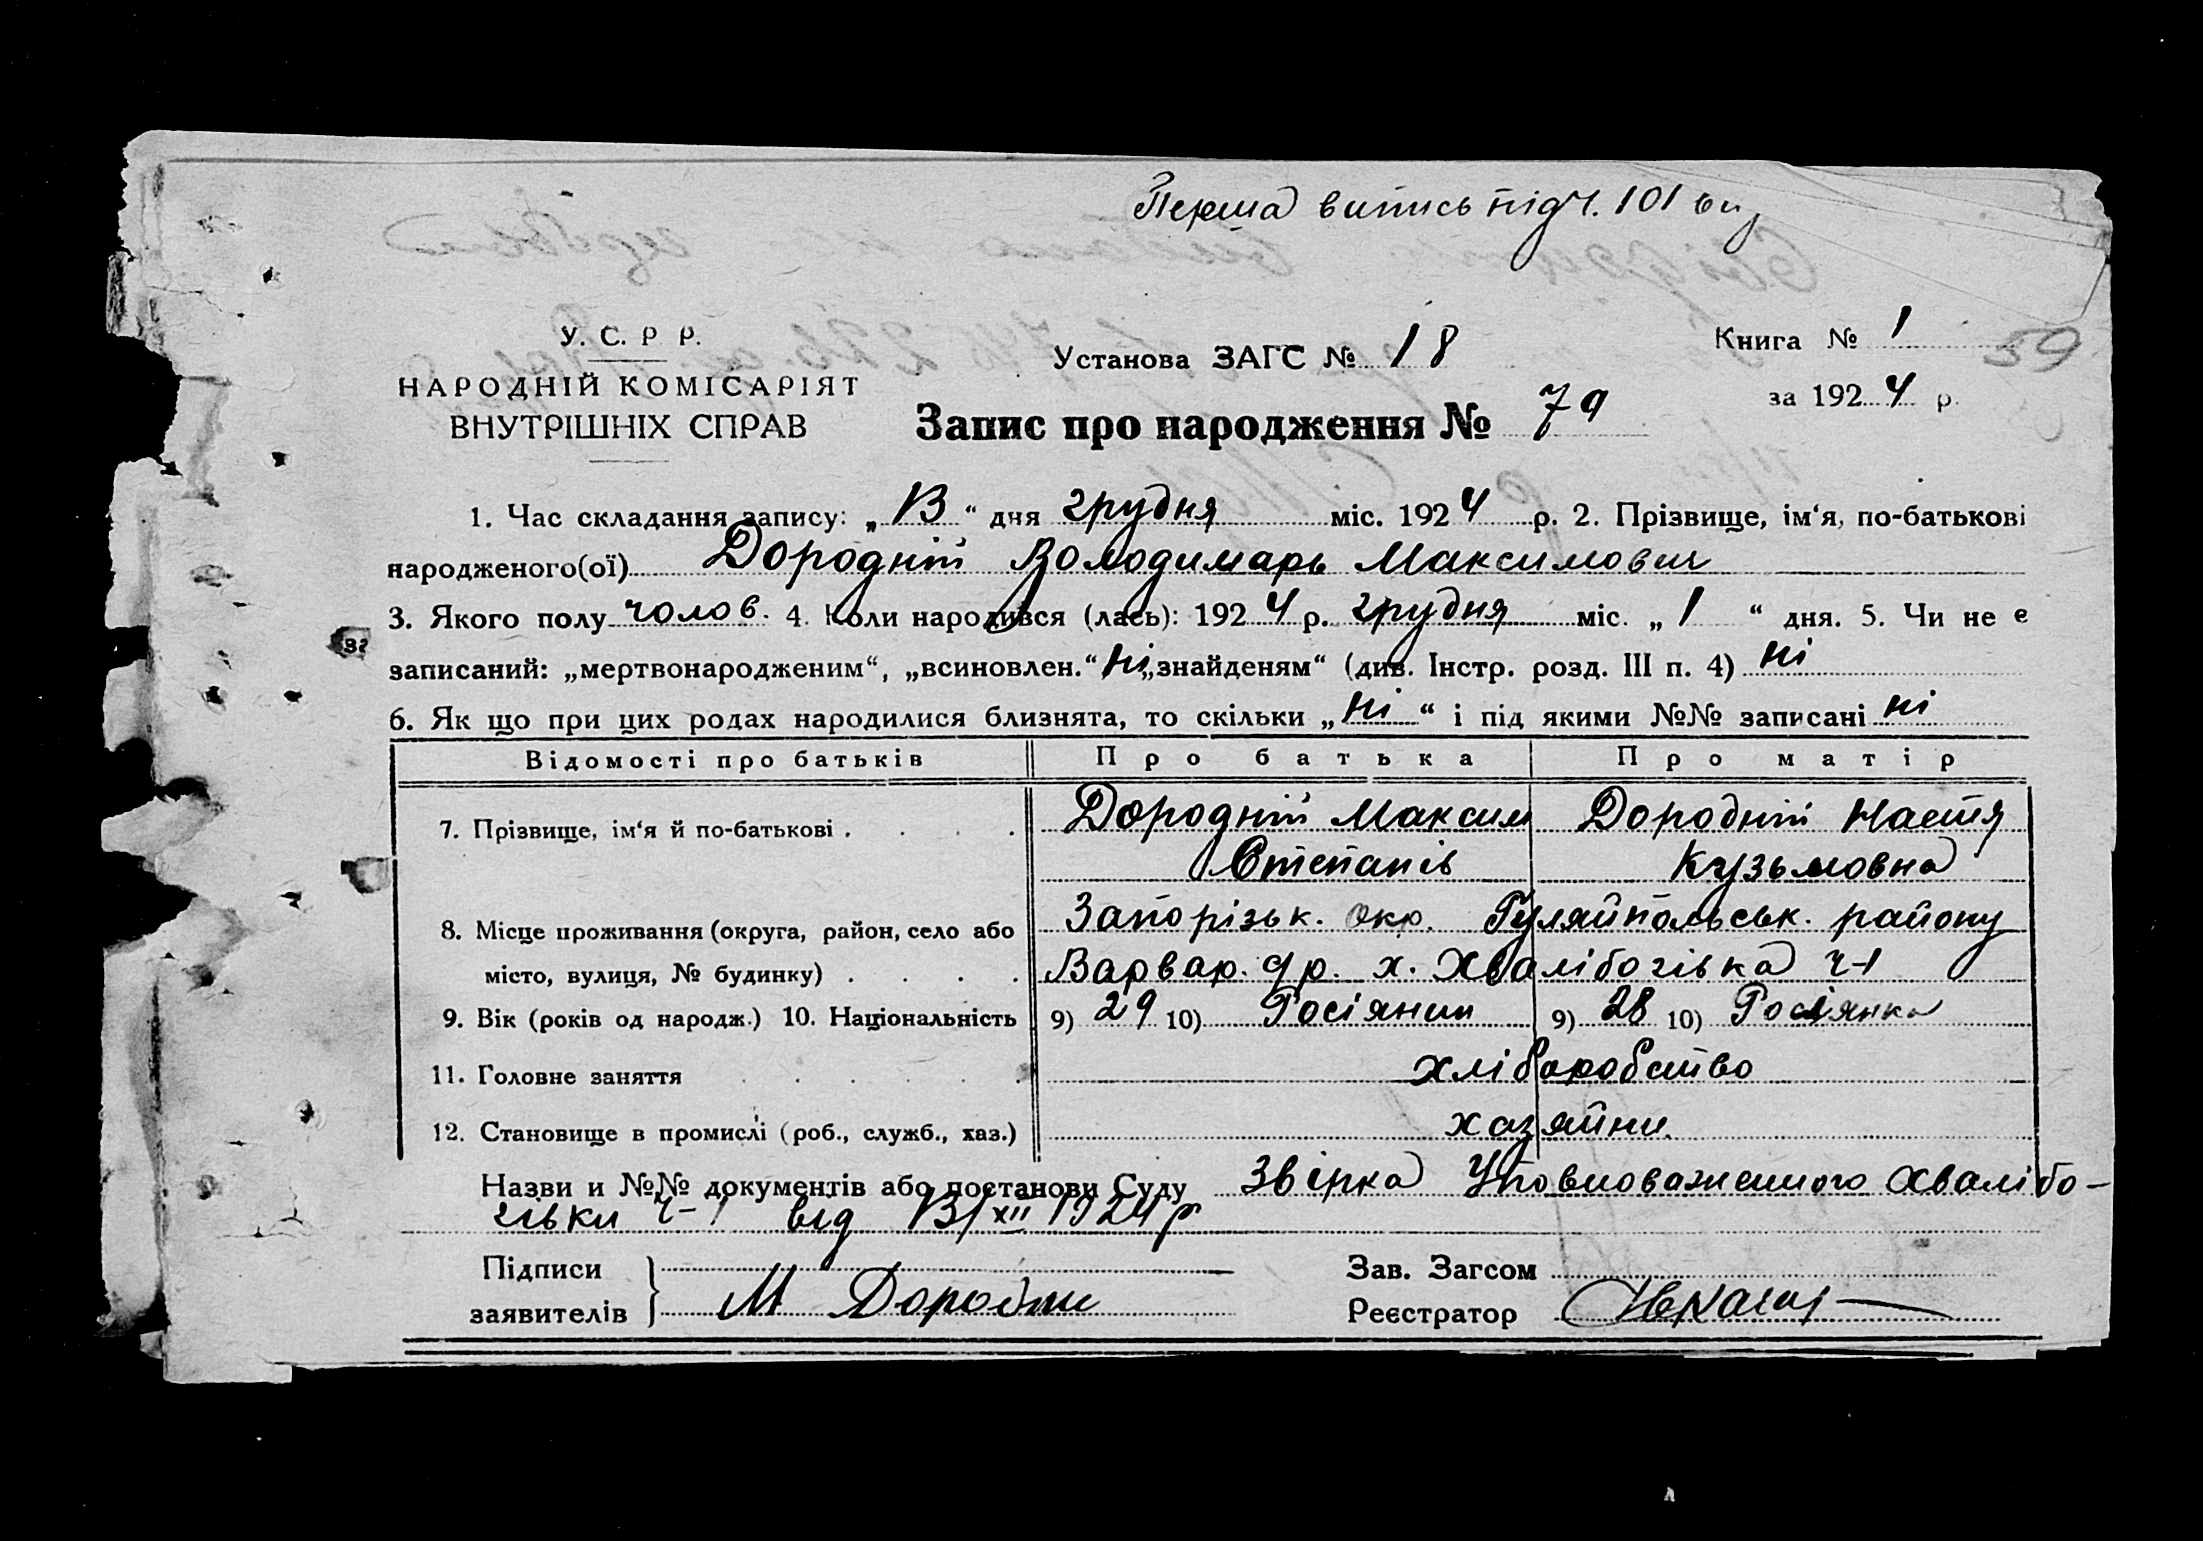 Перша випись під ч. 101 ви
У. С. Р Р.
НАРОДНІЙ КОМІСАРІЯТ
ВНУТРІШНІХ СПРАВ
Установа ЗАГС № 18
Книга № 1
59
за 1924 р.
Запис про народження № 79
1. Час складання запису: „13“ дня грудня міс. 1924 р. 2. Прізвище, ім‘я, по-батькові
народженого(ої) Дородній Володимарь Максимович
3. Якого полу чолов. 4. Коли народився (лась): 1924 р. грудня міс. „1“ дня. 5. Чи не є
записаний: „мертвонародженим“, „всиновлен.“ ні „знайденям“ (див. Інстр. розд. III п. 4) ні
6. Як що при цих родах народилися близнята, то скільки „ні“ і під якими №№ записані ні
Відомості про батьків Про батька Про матір
7. Прізвище, ім‘я й по-батькові . . . . Дородній Максим Дородній Настя
Степанів Кузьмовна
8. Місце проживання (округа, район, село або Запорізьк. окр. Гуляйпольськ. району
місто, вулиця, № будинку) . . . . Варвар. с/р. х. Хвалібогівка ч-1
9. Вік (років од народж.) 10. Національність 9) 29 10) Росіянин 9) 28 10) Росіянка
11. Головне заняття хліборобство
12. Становище в промислі (роб., служб., хаз.) хазяйни
Назви и №№ документів або постанови Суду Звірка Уповноваженого Хвалібо-
гівки ч-1 від 13/XII 1924 р
Підписи
заявителів М Дородни
Зав. Загсом
Реєстратор